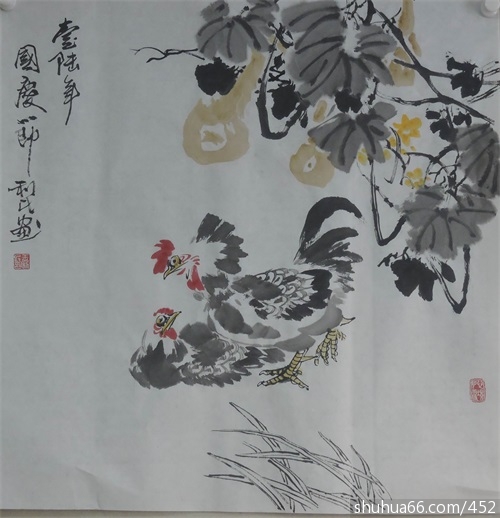 壹陆年
國慶节利民画
shuhua66.com/452